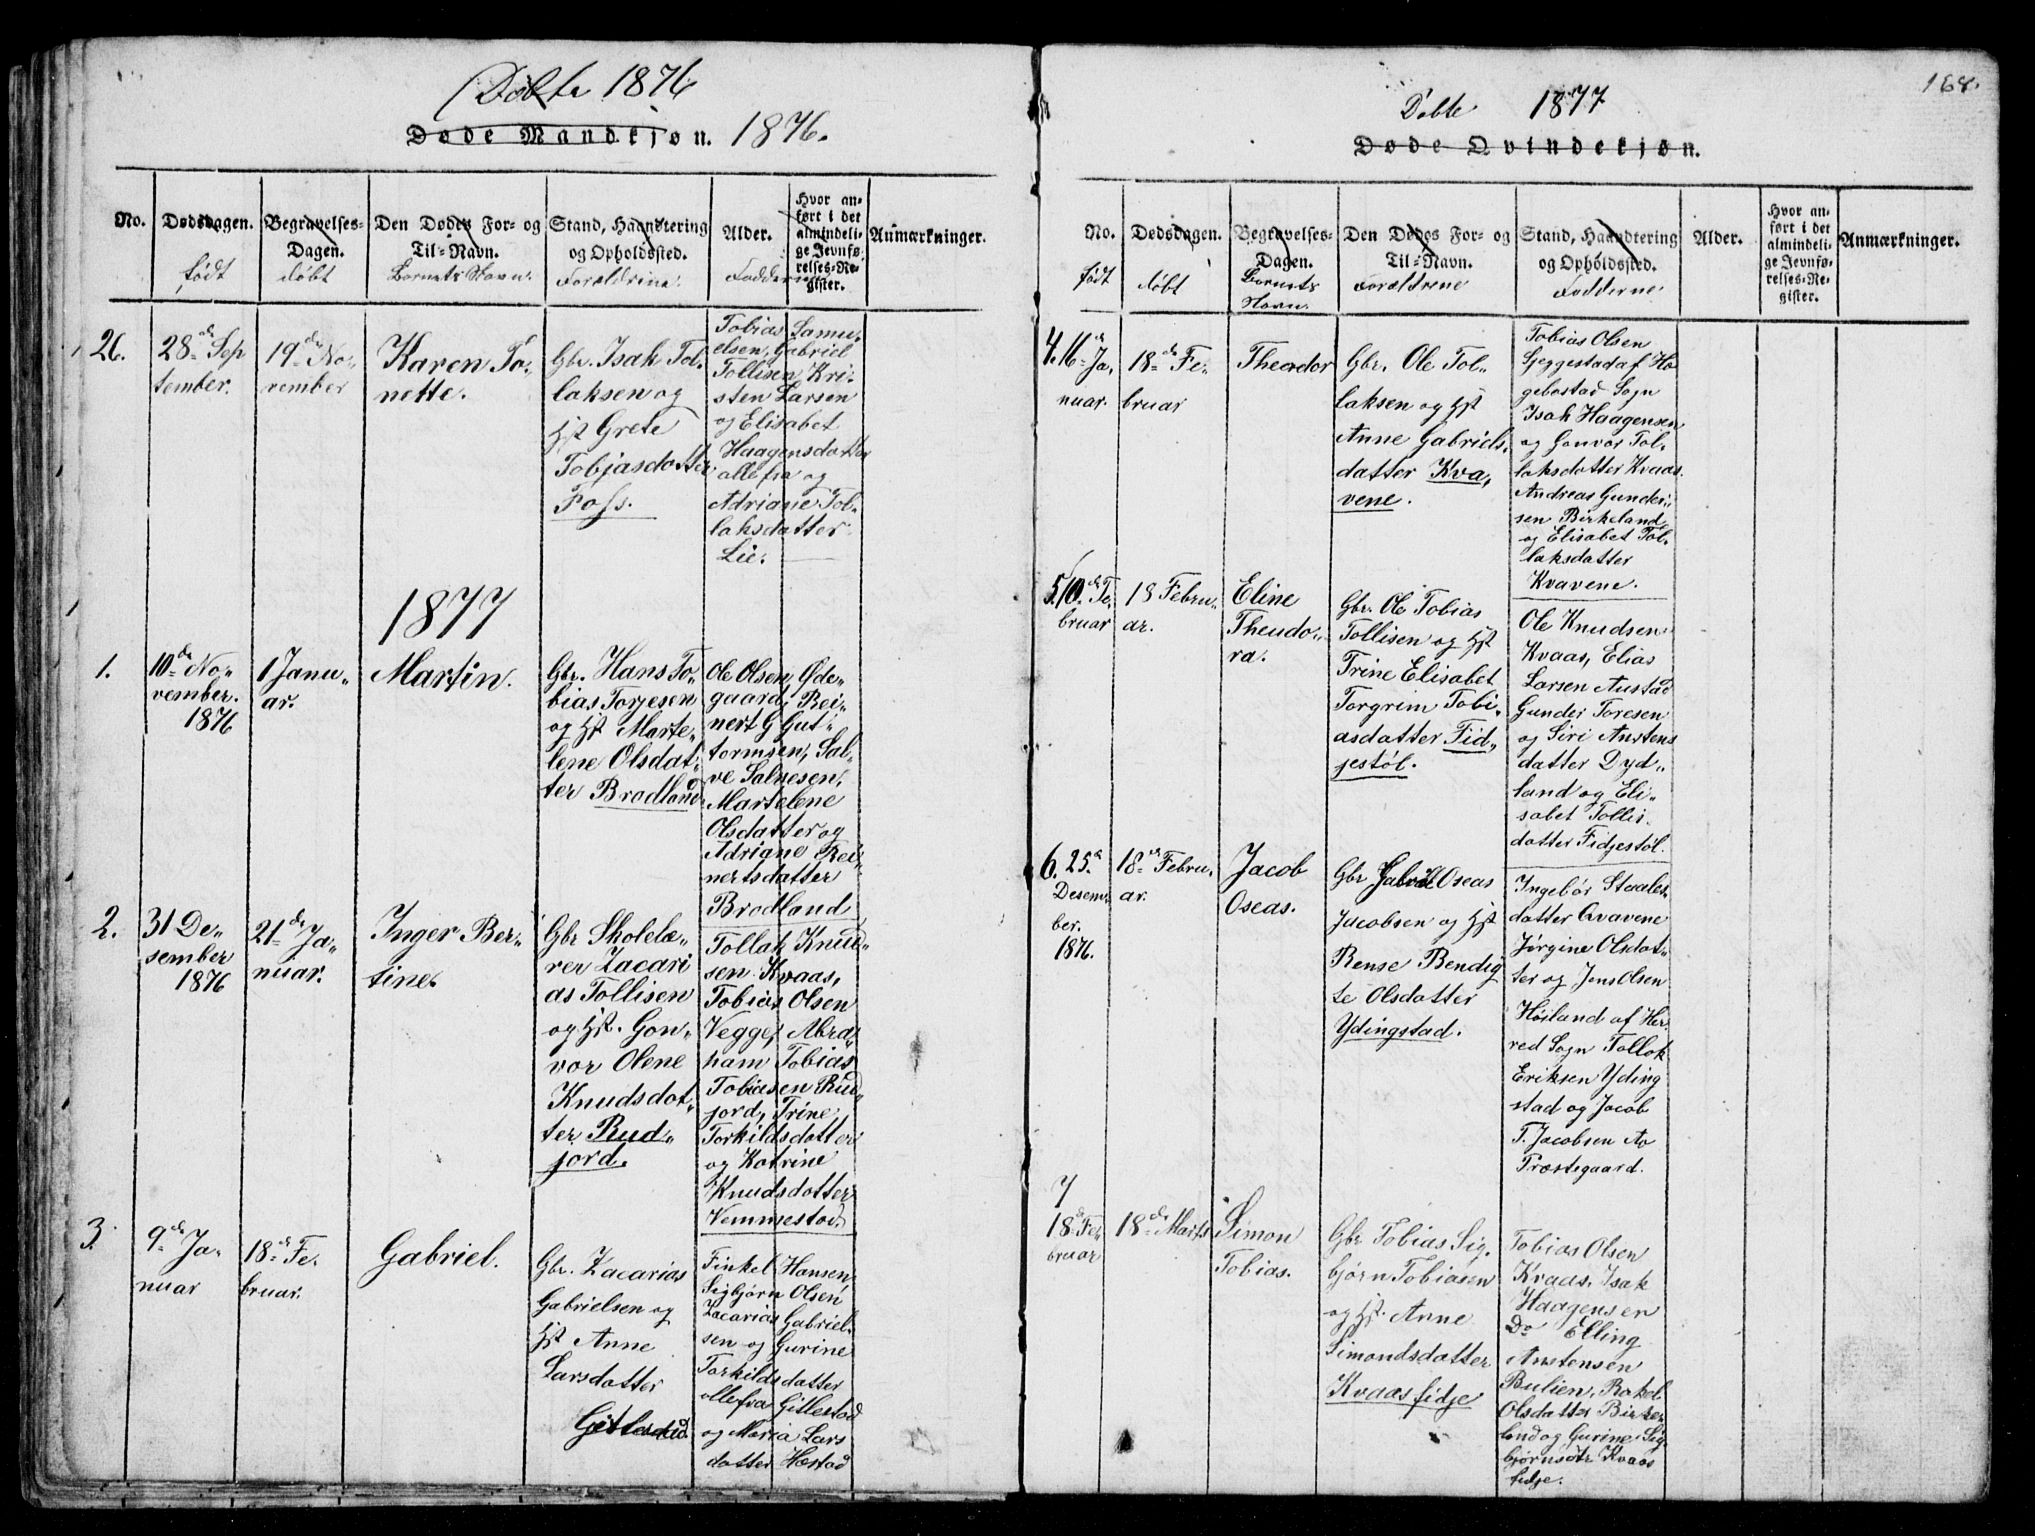 Døbte 1876
Døde Mandkjøn. 1876.
No.
Dødsdagen.
født
Begravelses-
Dagen.
døbt
Den Dødes For- og
Til-Navn.
Barnets Navn.
Stand, Haandtering
og Opholdssted.
Forældrene.
Alder.
Fadderne
Hvor an-
ført i det
almindeli-
ge Jevnfø-
relses-Re-
gister.
Anmærkninger.
26.
28de Sep
tember.
19de No-
vember
Karen To-
nette.
Gbr. Isak Tol-
laksen og
Hst Grete
Tobjasdatter
Foss.
Tobias Samu-
elsen, Gabriel
Tollisen Kri-
sten Larsen
og Elisabet
Haagensdatter
alle fra og
Adriane Tol-
laksdatter
Lie.
1877
1.
10de No-
vember.
1876
1 Janu-
ar.
Martin.
Gbr. Hans To-
bias Torjesen
og Hst Marte-
lene Olsdat-
ter Brodland
Ole Olsen, Øde-
gaard, Rei-
nert G Gut-
tormsen, Sal-
ve Salvesen,
Martelene
Olsdatter og
Adriane Rei-
nertsdatter
Brodland
2.
31 De-
sember
1876
21de Ja-
nuar.
Inger Ber-
tine.
Gbr Skolelæ-
rer Zacari
as Tollisen
og Hst. Gon-
vor Olene
Knudsdat-
ter Rud-
jord.
Tollak Knud-
sen Kvaas,
Tobias Olsen
Vegge, Abra-
ham Tobias
Tobiasen Rud-
jord, Trine
Torkildsdatter
og Katrine
Knudsdatter
Vemmestad
3.
9de Ja-
nuar
18de Fe-
bruar.
Gabriel.
Gbr. Zacarias
Gabrielsen og
Hst Anne
Larsdatter
Gitlestad
Finkel Hansen,
Sigbjørn Olsen
Zacarias Gabriel-
sen og Gurine
Torkildsdatter
alle fra Gitlestad
og Maria Lars
datter Høstad
168.
Døbte 1877
Døde Qvindekjøn.
No.
født
Dødsdagen.
døbt
Begravelses-
Dagen.
Barnets
Navn.
Den Dødes For- og
Til-Navn.
Forældrene
Stand, Haandtering
og Opholdssted.
Fadderne
Alder.
Hvor an-
ført i det
almindeli-
ge Jevnfø-
relses-Re-
gister.
Anmærkninger.
4. 16de Ja-
nuar.
18de Fe-
bruar
Theodor
Gbr. Ole Tol-
laksen og Hst
Anne Gabriels-
datter Kva-
vene.
Tobias Olsen
Sjeggestad af Hø-
gebostad Sogn
Isak Haagensen
og Gonvor Tol-
laksdatter Kvaas.
Andreas Gunder-
sen Birkeland
og Elisabet Tol-
laksdatter
Kvavene.
5. 10de Fe-
bruar
18 Febru-
ar.
Eline
Theodo-
ra.
Gbr. Ole Tobias
Tollisen og Hst
Trine Elisabet
Torgrim Tobi-
asdatter Fid-
jestøl.
Ole Knudsen
Kvaas, Elias
Larsen Austad
Gunder Toresen
og Siri Anstens
datter Dyd-
land og Eli-
sabet Tollis-
datter Fidjestøl.
6. 25de
Desem-
ber.
1876.
18de Febru-
ar.
Jacob
Oseas.
Gbr Gabriel Oseas
Jacobsen og Hst
Rense Bendig
te Olsdatter
Ydingstad.
Ingebør Staales-
datter Qvavene
Jørgine Olsdat-
ter og Jens Olsen
Høiland af Her-
red Sogn Tollok
Eriksen Yding
stad og Jacob
T. Jacobsen Av
Præstegaard.
7
18de Fe-
bruar
18de Marts
Simon
Tobias.
Gbr Tobias Sig-
bjørn Tobiasen
og Hst. Anne
Simondsdatter
Kvaasfidje
Tobias Olsen
Kvaas, Isak
Haagensen
Do Elling
Anstensen
Bulien, Rakel
Olsdatter Birke-
land og Gurine Sig-
bjørnsdtr Kvaas
fidje.